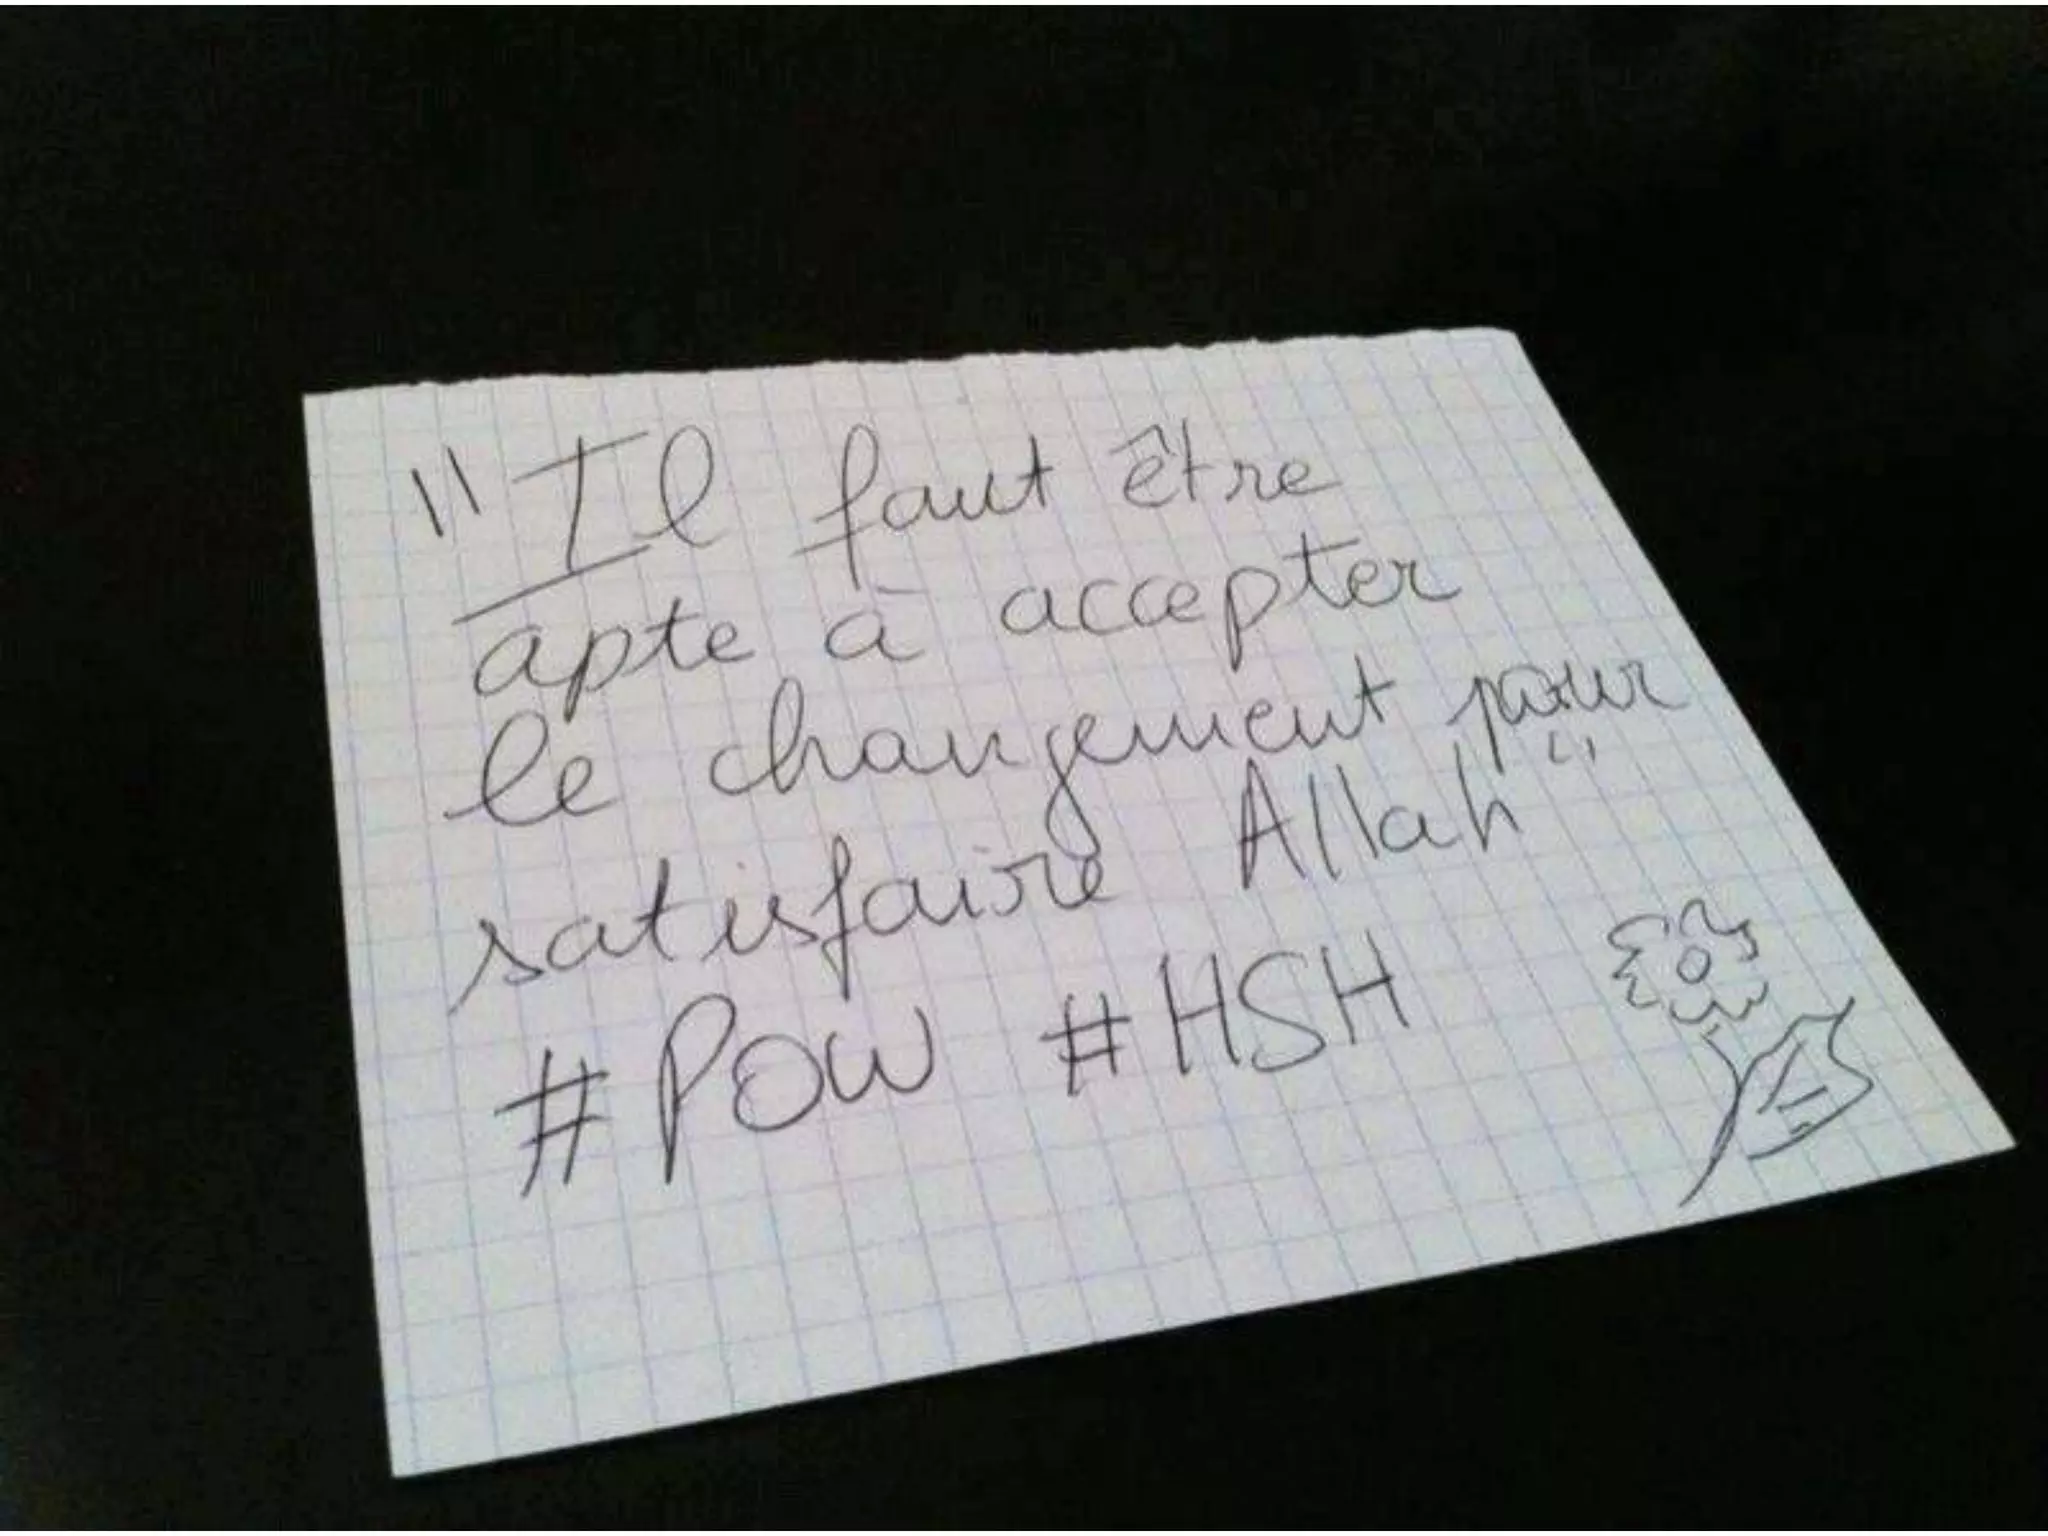 "Il faut être
apte à accepter
le changement pour
satisfaire Allah"
#POW #HSH